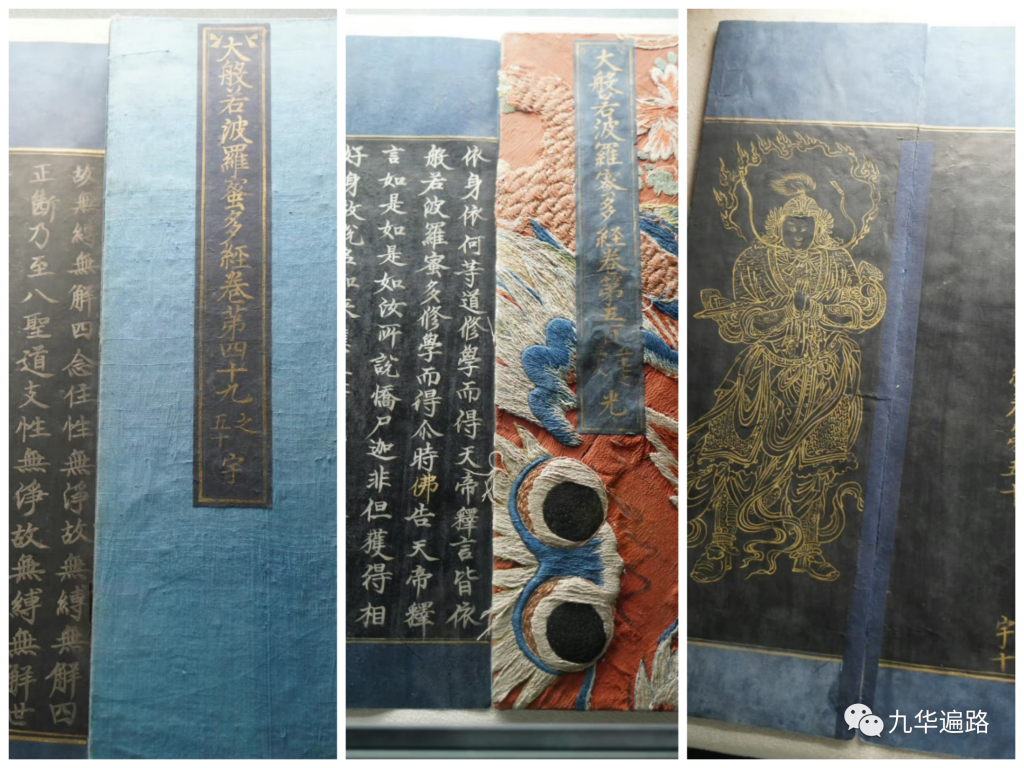 大般若波羅蜜多經卷苐四十九之五十 宇
故無縛無解四念住性無淨故無縛無解四
正斷乃至八聖道支性無淨故無縛無解世
大般若波羅蜜多經卷第五 光
依身依何等道修學而得天帝釋言皆依
般若波羅蜜多修學而得尒時佛告天帝釋
言如是如是如汝所説憍尸迦非但獲得相
好身故說名
宇十
九华遍路